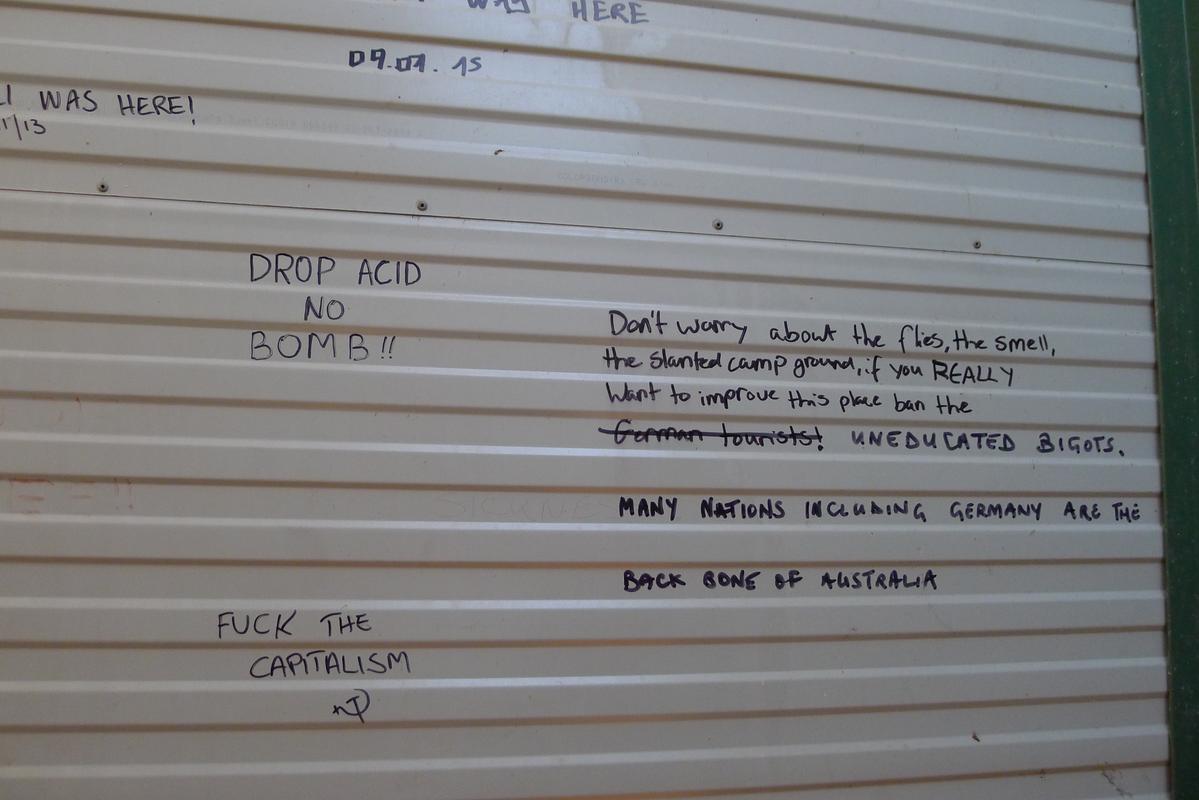 WAS HERE
09.01.15
WAS HERE!
1/13
DROP ACID
NO
BOMB!!
Don't worry about the flies, the smell,
the slanted camp ground, if you REALLY
Want to improve this place ban the
German tourists! UNEDUCATED BIGOTS.
MANY NATIONS INCLUDING GERMANY ARE THE
BACK BONE OF AUSTRALIA
FUCK THE
CAPITALISM